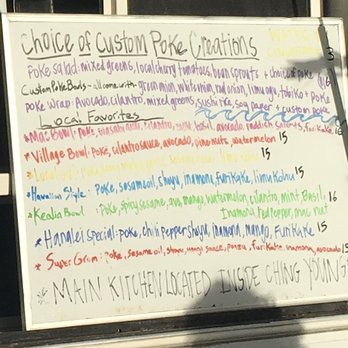 Choice of Custom Poke Creations
Poke Salad: mixed greens, local cherry tomatoes, bean sprouts + choice of poke
Custom Poke Bowls - all come with: green onion, white onion, red onion, limu ogo, tobiko + poke 16
Poke Wrap: Avocado, cilantro, mixed greens, sushi rice, soy paper + custom poke
Local Favorites
Mac Bowl: Poke, avocado, raddish furi Kake 16
Village Bowl: poke, cilantro sauce, avocado, watermelon 15
Hawaiian Style: poke, sesame oil, shoyu, inamona, furi Kake, limu Kohu 15
Kealia Bowl: poke, spicy sesame, mango, watermelon, cilantro, mint, Basil 16
Inamona, red pepper, mac nut
Hanalei Special: poke, chili pepper shoyu, inamona, mango, Furi Kake 15
Super Grom: poke, sesame oil, shoyu, sauce, ponzu, furi Kake, inamona, avocado 15
MAIN KITCHEN LOCATED INSIDE CHING YOUNG